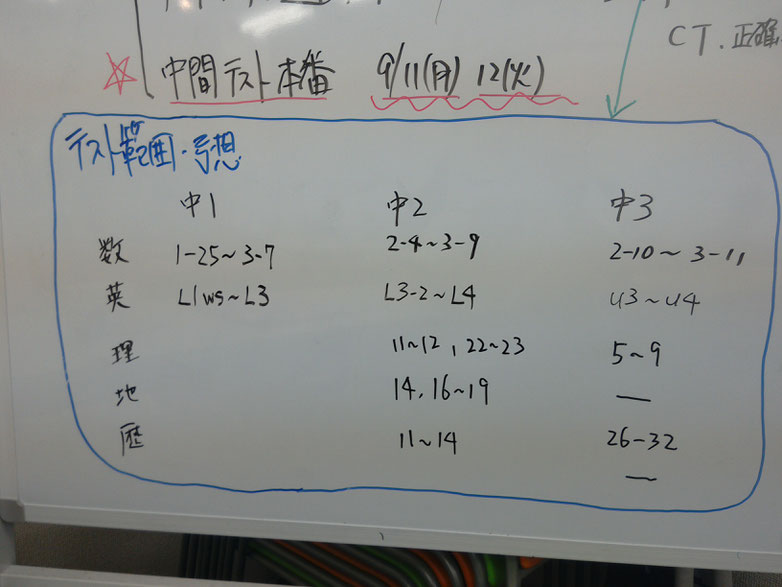 CT.正確
中間テスト本番 9/11(月) 12(火)
テスト範囲・予想
中1 中2 中3
数 1-25～3-7 2-4～3-9 2-10～3-11
英 L1ws～L3 L3-2～L4 U3～U4
理 11～12, 22～23 5～9
地 14, 16～19 —
歴 11～14 26-32
—